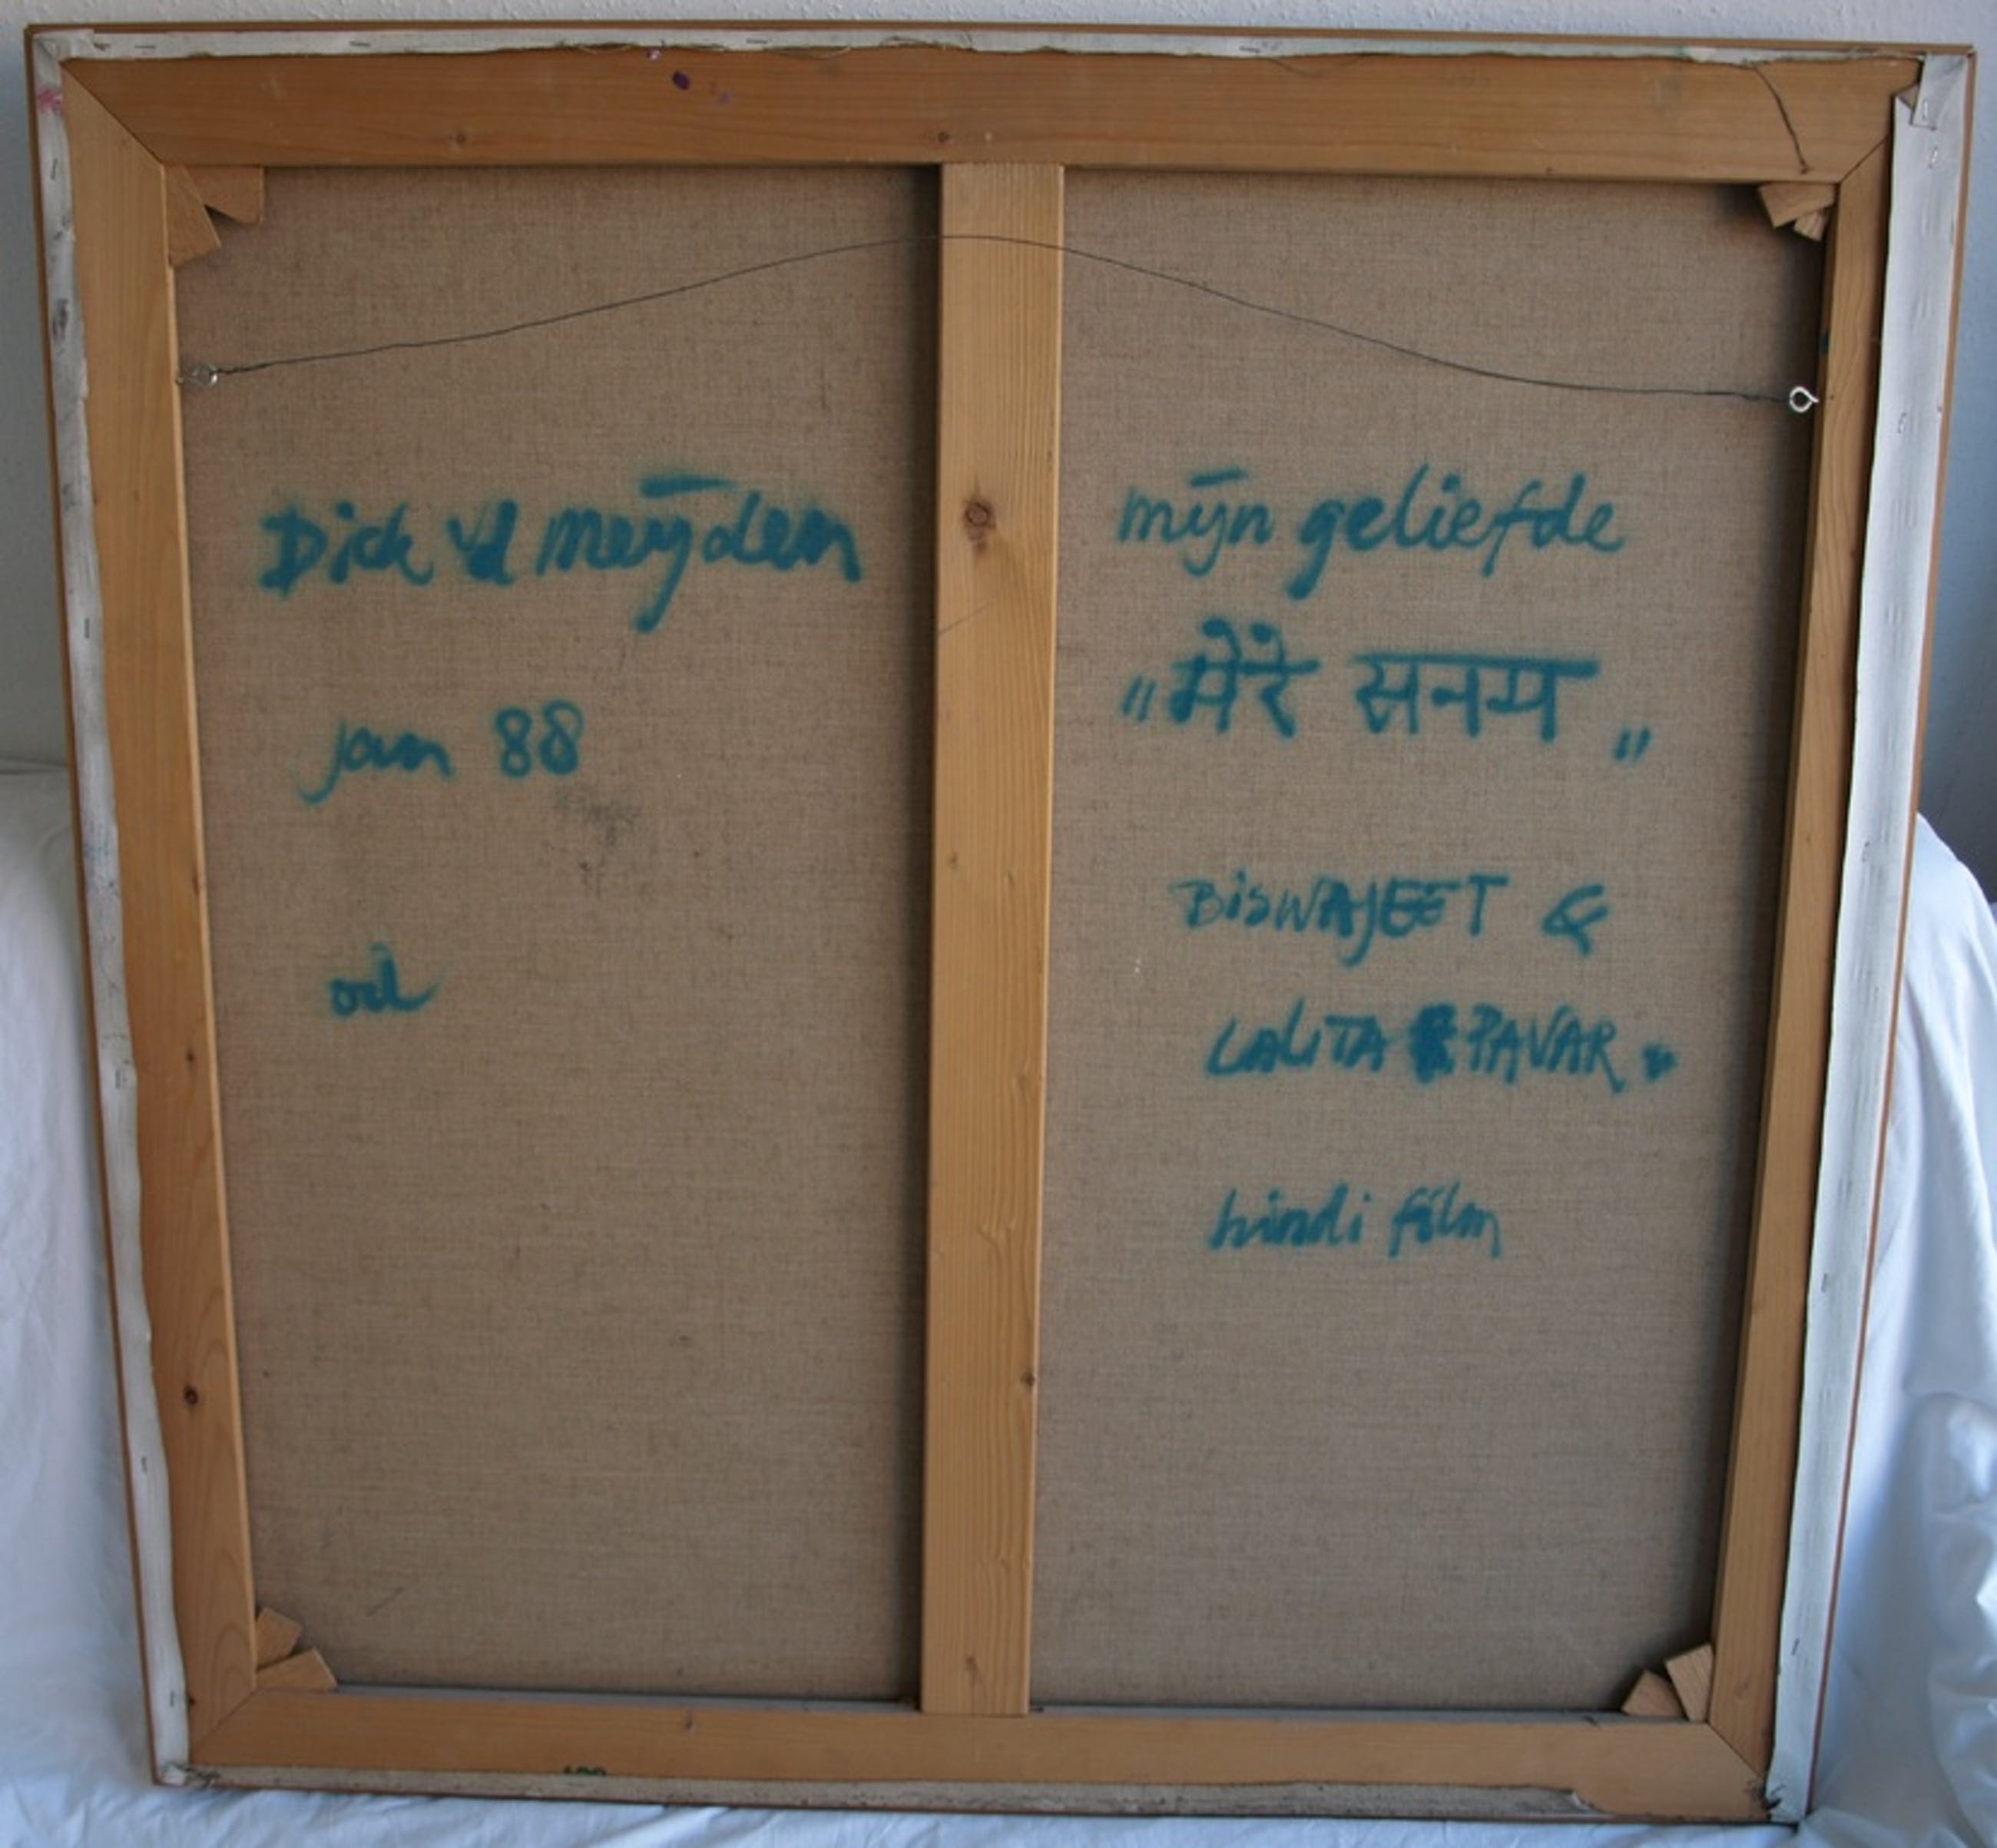 Dick vd meÿden
jan 88
oil
mijn geliefde
"मेरे सनम"
BISWAJEET &
LALITA PAVAR.
hindi film